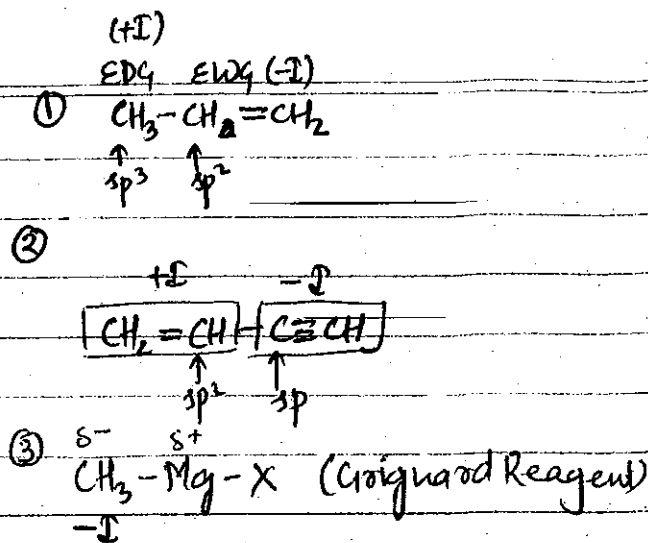 (+I)
EDG EWG (-I)
① CH₃-CH=CH₂
↑ ↑
sp³ sp²
②
+I -I
CH₂=CH-C≡CH
↑ ↑
sp² sp
③ δ- δ+
CH₃-Mg-X (Grignard Reagent)
-I